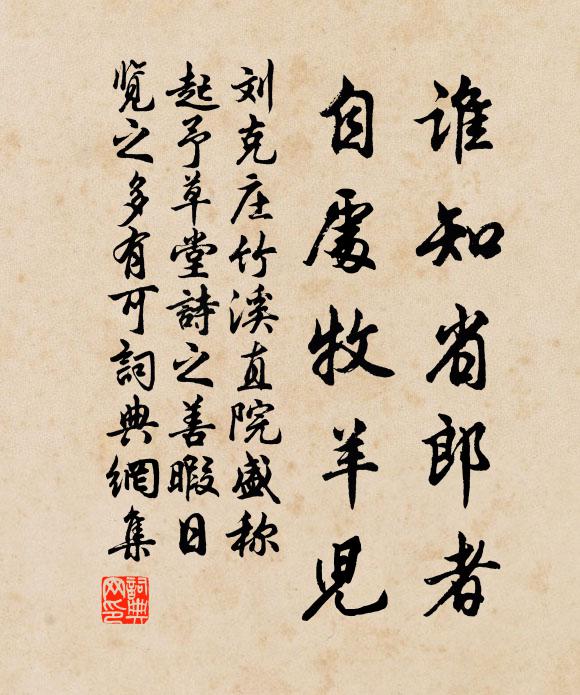 誰知省郎者
自處牧羊兒
刘克庄竹溪直院盛称
起予草堂詩之善暇日
覽之多有可詞典網集
詞典
网印